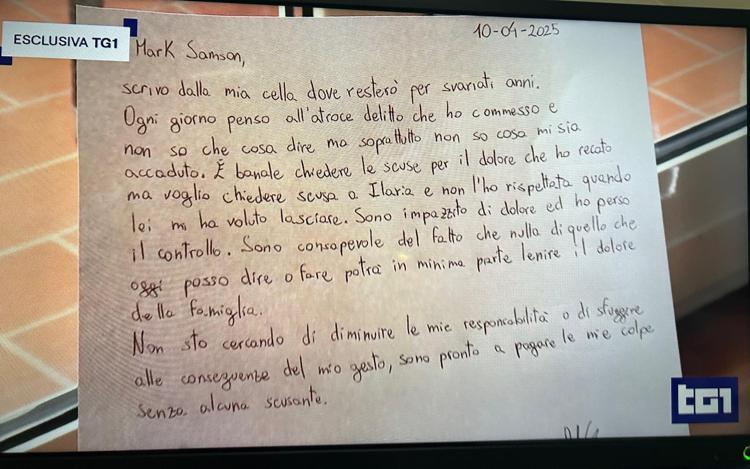 ESCLUSIVA TG1
10-04-2025
Mark Samson,
scrivo dalla mia cella dove resterò per svariati anni.
Ogni giorno penso all'atroce delitto che ho commesso e
non so che cosa dire ma soprattutto non so cosa mi sia
accaduto. È banale chiedere le scuse per il dolore che ho recato
ma voglio chiedere scusa a Ilaria e non l'ho rispettata quando
lei mi ha voluto lasciare. Sono impazzito di dolore ed ho perso
il controllo. Sono consapevole del fatto che nulla di quello che
oggi posso dire o fare potrà in minima parte lenire il dolore
della famiglia.
Non sto cercando di diminuire le mie responsabilità o di sfuggire
alle conseguenze del mio gesto, sono pronto a pagare le mie colpe
senza alcuna scusante.
tg1